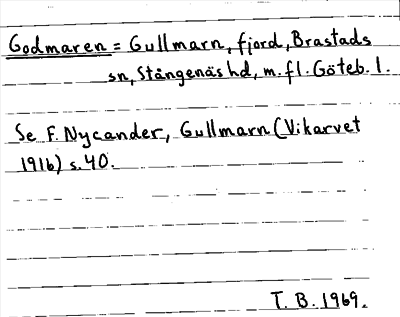 Godmaren = Gullmarn, fjord, Brastads
sn, Stångenäs hd, m.fl. Göteb. l.
Se F. Nycander, Gullmarn (Vikarvet
1916) s. 40.
T. B. 1969.